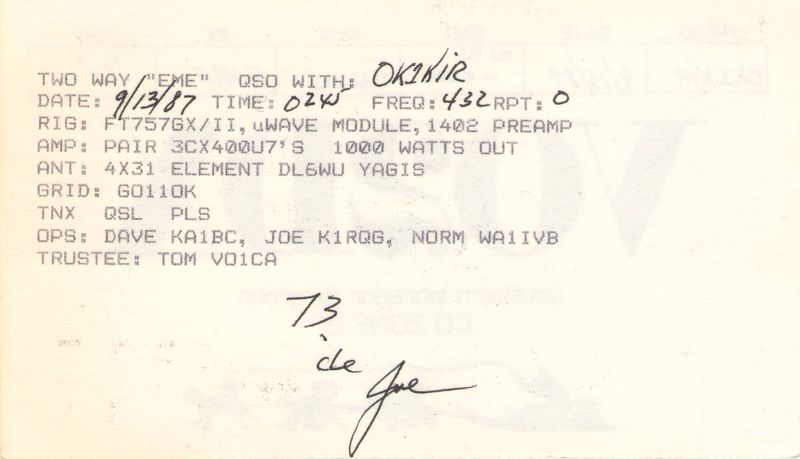 TWO WAY "EME" QSO WITH: OK1KIR
DATE: 9/13/87 TIME: 0245 FREQ: 432 RPT: O
RIG: FT757GX/II, uWAVE MODULE, 1402 PREAMP
AMP: PAIR 3CX400U7'S 1000 WATTS OUT
ANT: 4X31 ELEMENT DL6WU YAGIS
GRID: GO11OK
TNX QSL PLS
OPS: DAVE KA1BC, JOE K1RQG, NORM WA1IVB
TRUSTEE: TOM VO1CA
73
de
Joe